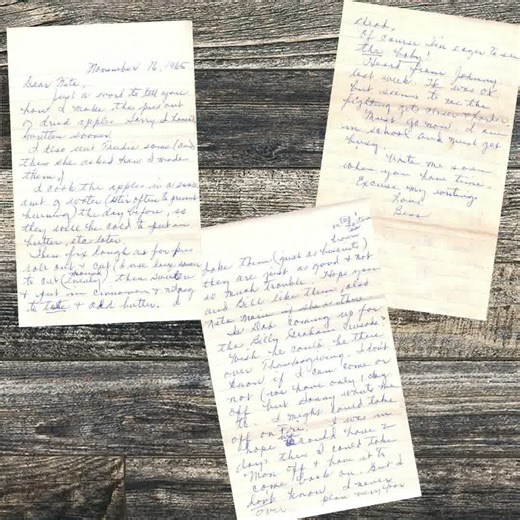 November 16, 1965
Dear Fate,
Just a word to tell you
how I make the pies out
of dried apples. Sorry I haven't
written sooner.
I also sent some (and
then she asked how I made
them.)
I cook the apples in a small
amt of water (stir often to prevent
burning) the day before, so
they will be cold to put on
butter, etc. later.
Then fix dough as for pies
roll and cut (I use
to cut) then sweeten
& put in cinnamon & nutmeg
to taste & add butter. I
bake them (just as biscuits)
they are just as good & not
so much trouble. Hope you
and Bill like them, also
Is Dad coming up for
the Billy Graham Crusade.
Wish he could be there
over Thanksgiving. I don't
know if I can come or
not (we have only 1 day
off but Sonny wants me
to. I might could take
off on Fri. I was in
hope we would have 2
days, then I could take
Mon off & have it to
come back on. But I
don't know. I never
over plan very far
ahead.
Of course I'm eager to see
the baby.
Heard from Johnny
last week. He was OK
but seems to me the
fighting gets harder.
Must go now. I am
in school and must get
busy. Write me soon
when you have time.
Excuse my writing.
Love